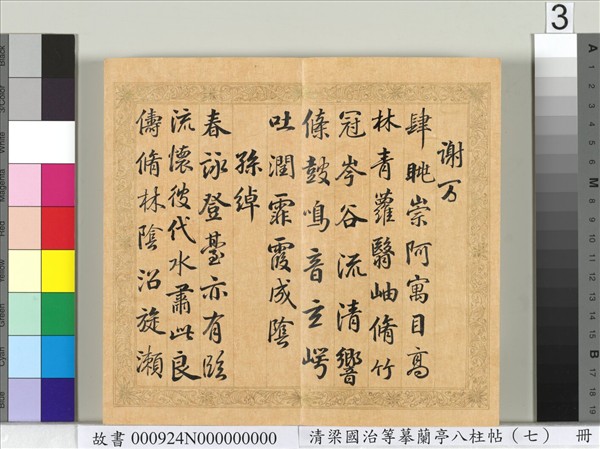 3
謝万
肆眺崇阿寓目高
林青蘿翳岫脩竹
冠岑谷流清響
條鼓鳴音玄崿
吐潤霏霞成陰
孫綽
春詠登臺亦有臨
流懷彼伐木肅此良
儔脩林陰沼旋瀨
故書 000924N000000000
清梁國治等摹蘭亭八柱帖（七） 冊
Black
3/Color
White
Magenta
Red
Yellow
Green
Cyan
Blue
A
1
2
3
4
5
6
M
8
9
10
11
12
13
14
15
B
17
18
19